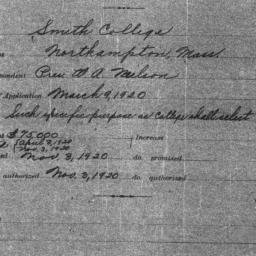 Smith College
Northampton, Mass.
Pres. W. A. Neilson
Application March 9, 1920
Such specific purpose as College shall select
$75,000 Increase
April 9, 1920
Nov. 3, 1920
Nov. 3, 1920 do promised
authorized Nov. 3, 1920 do authorized